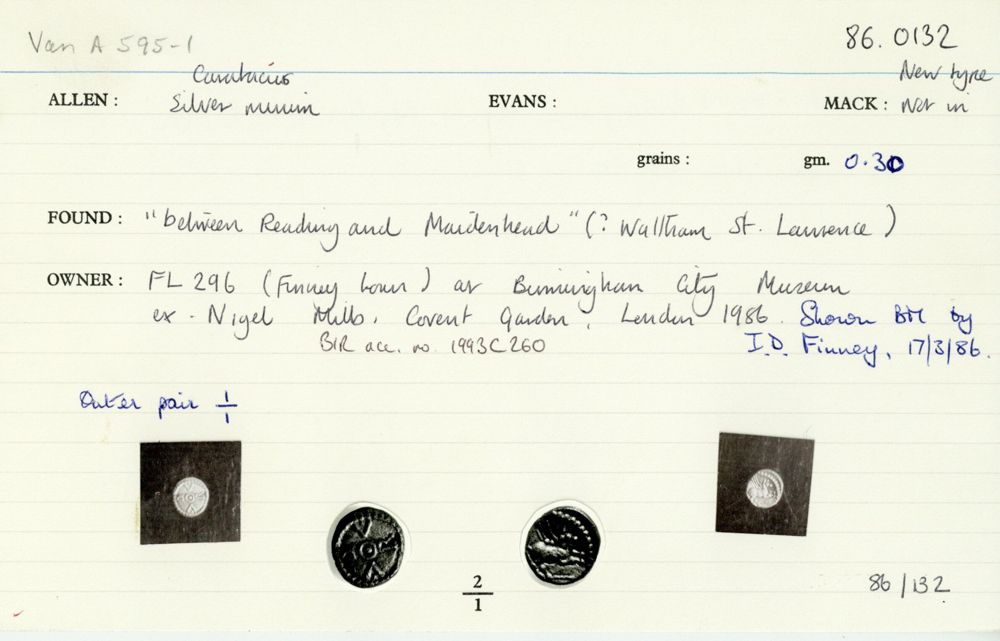 Van A 595-1
86.0132
Caratacus
New type
ALLEN : Silver minim EVANS : MACK : Not in
grains : gm. 0.30
FOUND : "between Reading and Maidenhead" (? Waltham St. Lawrence)
OWNER : FL 296 (Finney loan) at Birmingham City Museum
ex. Nigel Mills, Covent Garden, London 1986. Shown BM by
BIR acc. no. 1993C260 I.D. Finney, 17/3/86.
Outer pair 1/1
2/1
86/132